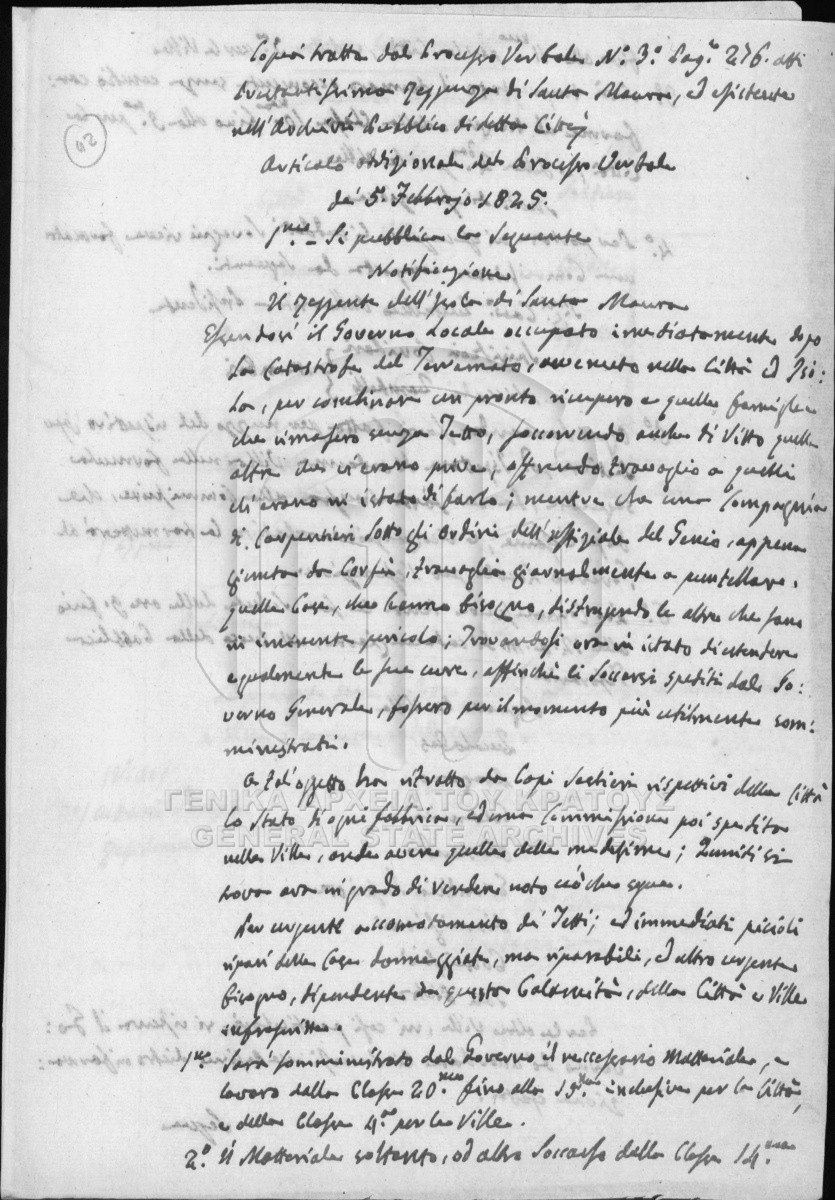 Copia tratta dal Processo Verbale N.º 3.º Pag.ª 276. atti
Prestantissima Reggenza di Santa Maura, ed esistente
nell'Archivio Pubblico di detta Città
50
Articolo addizionale del Processo Verbale
dei 5. Febbrajo 1825.
p.mo Si pubblica la seguente
Notificazione
Il Reggente dell'Isola di Santa Maura
Essendosi il Governo Locale occupato immediatamente dopo
la Catastrofe del Terremoto, avvenuto nella Città ed Iso:
la, per combinare un pronto ricupero a quelle famiglie
che rimasero senza Tetto, soccorrendo anche di Vitto quelle
altre che n'erano prive, offrendo travaglio a quelli
ch'erano in istato di farlo; mentre che una Compagnia
di Carpentieri sotto gli ordini dell'Uffiziale del Genio, appena
giunta da Corfù, travaglia giornalmente a puntellare
quelle Case, che hanno bisogno, distruggendo le altre che sono
in imminente pericolo; Trovandosi ora in istato di estendere
egualmente le sue cure, affinchè li Soccorsi spediti dal Go:
verno Generale, fossero per il momento più utilmente som:
ministrati.
A tal'oggetto ha ritratto da Capi Sestieri rispettivi della Città
lo Stato di ogni fabbrica, ed una Commissione poi spedita
nelle Ville, onde avere quello delle medesime;
trova ora in grado di rendere noto ciò che segue.
Per urgente accomodamento dei Tetti, ed immediati piccioli
ripari delle Case danneggiate, ma riparabili, ed altro urgente
bisogno, dipendente da questa Calamità, della Città e Ville
infrascritte.
p.mo Sarà somministrato dal Governo il neccessario Matteriale, e
lavoro dalla Classe 20.ma fino alla 15.ma inclusive per la Città,
e della Classe 4.ta per le Ville.
2.º Il Matteriale soltanto, od altro Soccorso dalla Classe 14.ma
ΓΕΝΙΚΑ ΑΡΧΕΙΑ ΤΟΥ ΚΡΑΤΟΥΣ
GENERAL STATE ARCHIVES